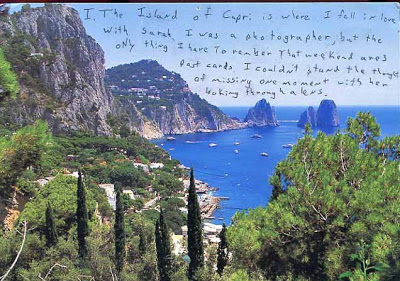 I. The Island of Capri is where I fell in love
with Sarah. I was a photographer, but the
only thing I have to remember that weekend are
post cards. I couldn't stand the thought
of missing one moment with her
looking through a lens.